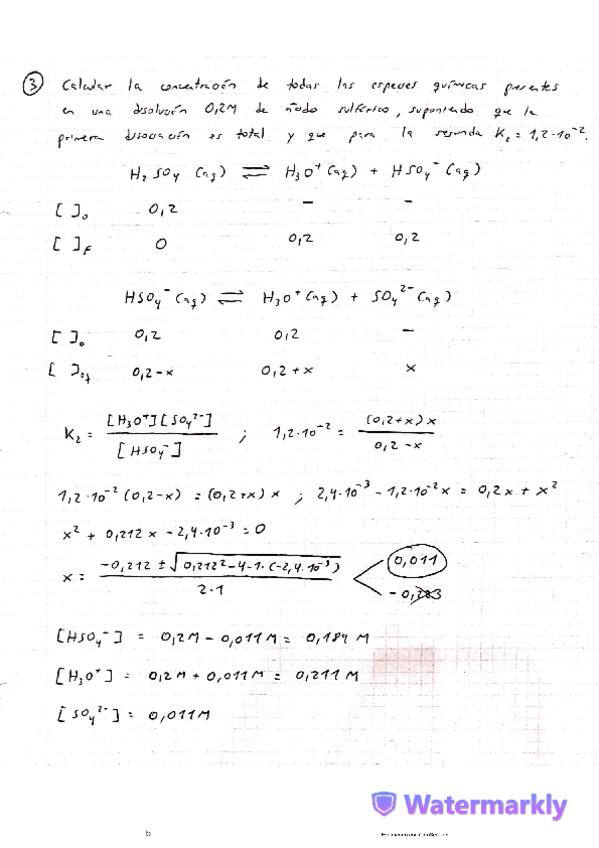 ③ Calcular la concentración de todas las especies químicas presentes
en una disolución 0,2M de ácido sulfúrico, suponiendo que la
primera disociación es total y que para la segunda K₂ = 1,2·10⁻².
H₂SO₄ (aq) ⇌ H₃O⁺(aq) + HSO₄⁻(aq)
[ ]₀ 0,2 – –
[ ]f 0 0,2 0,2
HSO₄⁻(aq) ⇌ H₃O⁺(aq) + SO₄²⁻(aq)
[ ]₀ 0,2 0,2 –
[ ]eq 0,2-x 0,2+x x
K₂ = [H₃O⁺][SO₄²⁻] / [HSO₄⁻] ; 1,2·10⁻² = (0,2+x)x / 0,2-x
1,2·10⁻²(0,2-x) = (0,2+x)x ; 2,4·10⁻³ - 1,2·10⁻²x = 0,2x + x²
x² + 0,212x - 2,4·10⁻³ = 0
x = -0,212 ± √(0,212² - 4·1·(-2,4·10⁻³)) / 2·1 0,011
[HSO₄⁻] = 0,2M - 0,011M = 0,189 M
[H₃O⁺] = 0,2M + 0,011M = 0,211M
[SO₄²⁻] = 0,011M
Watermarkly